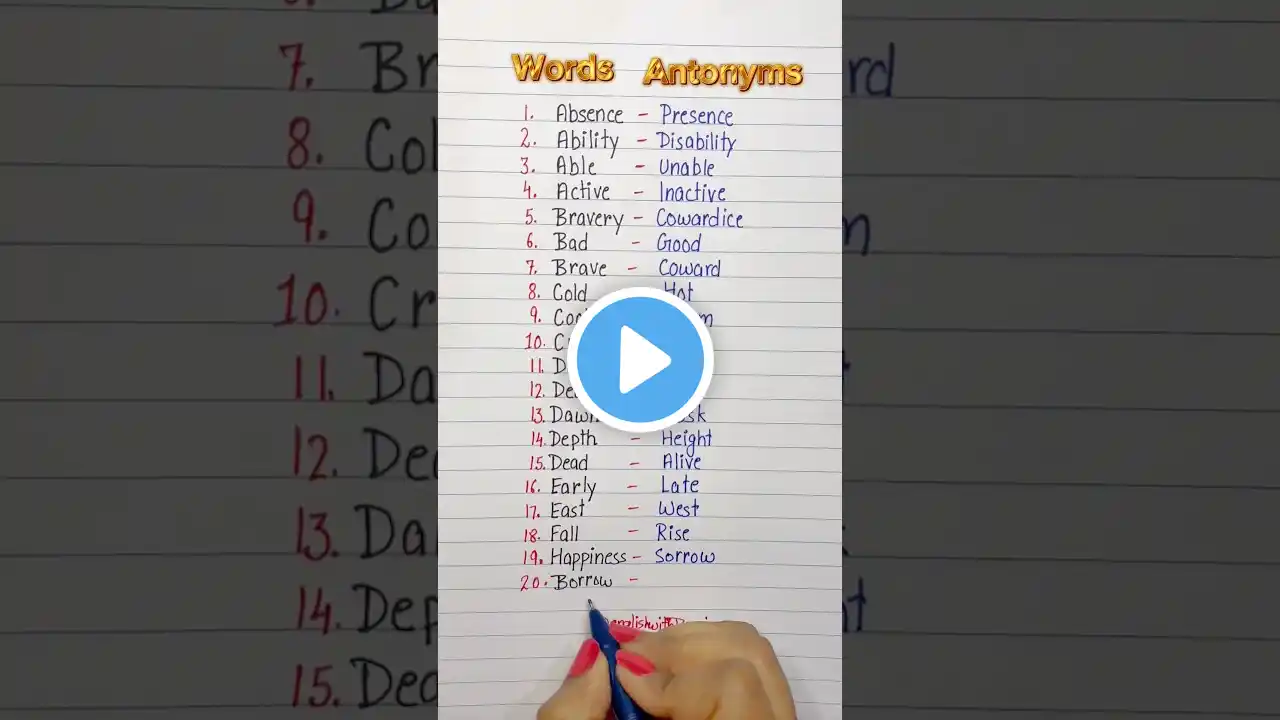 Words Antonyms
1. Absence - Presence
2. Ability - Disability
3. Able - Unable
4. Active - Inactive
5. Bravery - Cowardice
6. Bad - Good
7. Brave - Coward
8. Cold Hot
9.
10.
11.
12.
13. Dawn
14. Depth - Height
15. Dead - Alive
16. Early - Late
17. East - West
18. Fall - Rise
19. Happiness - Sorrow
20. Borrow -